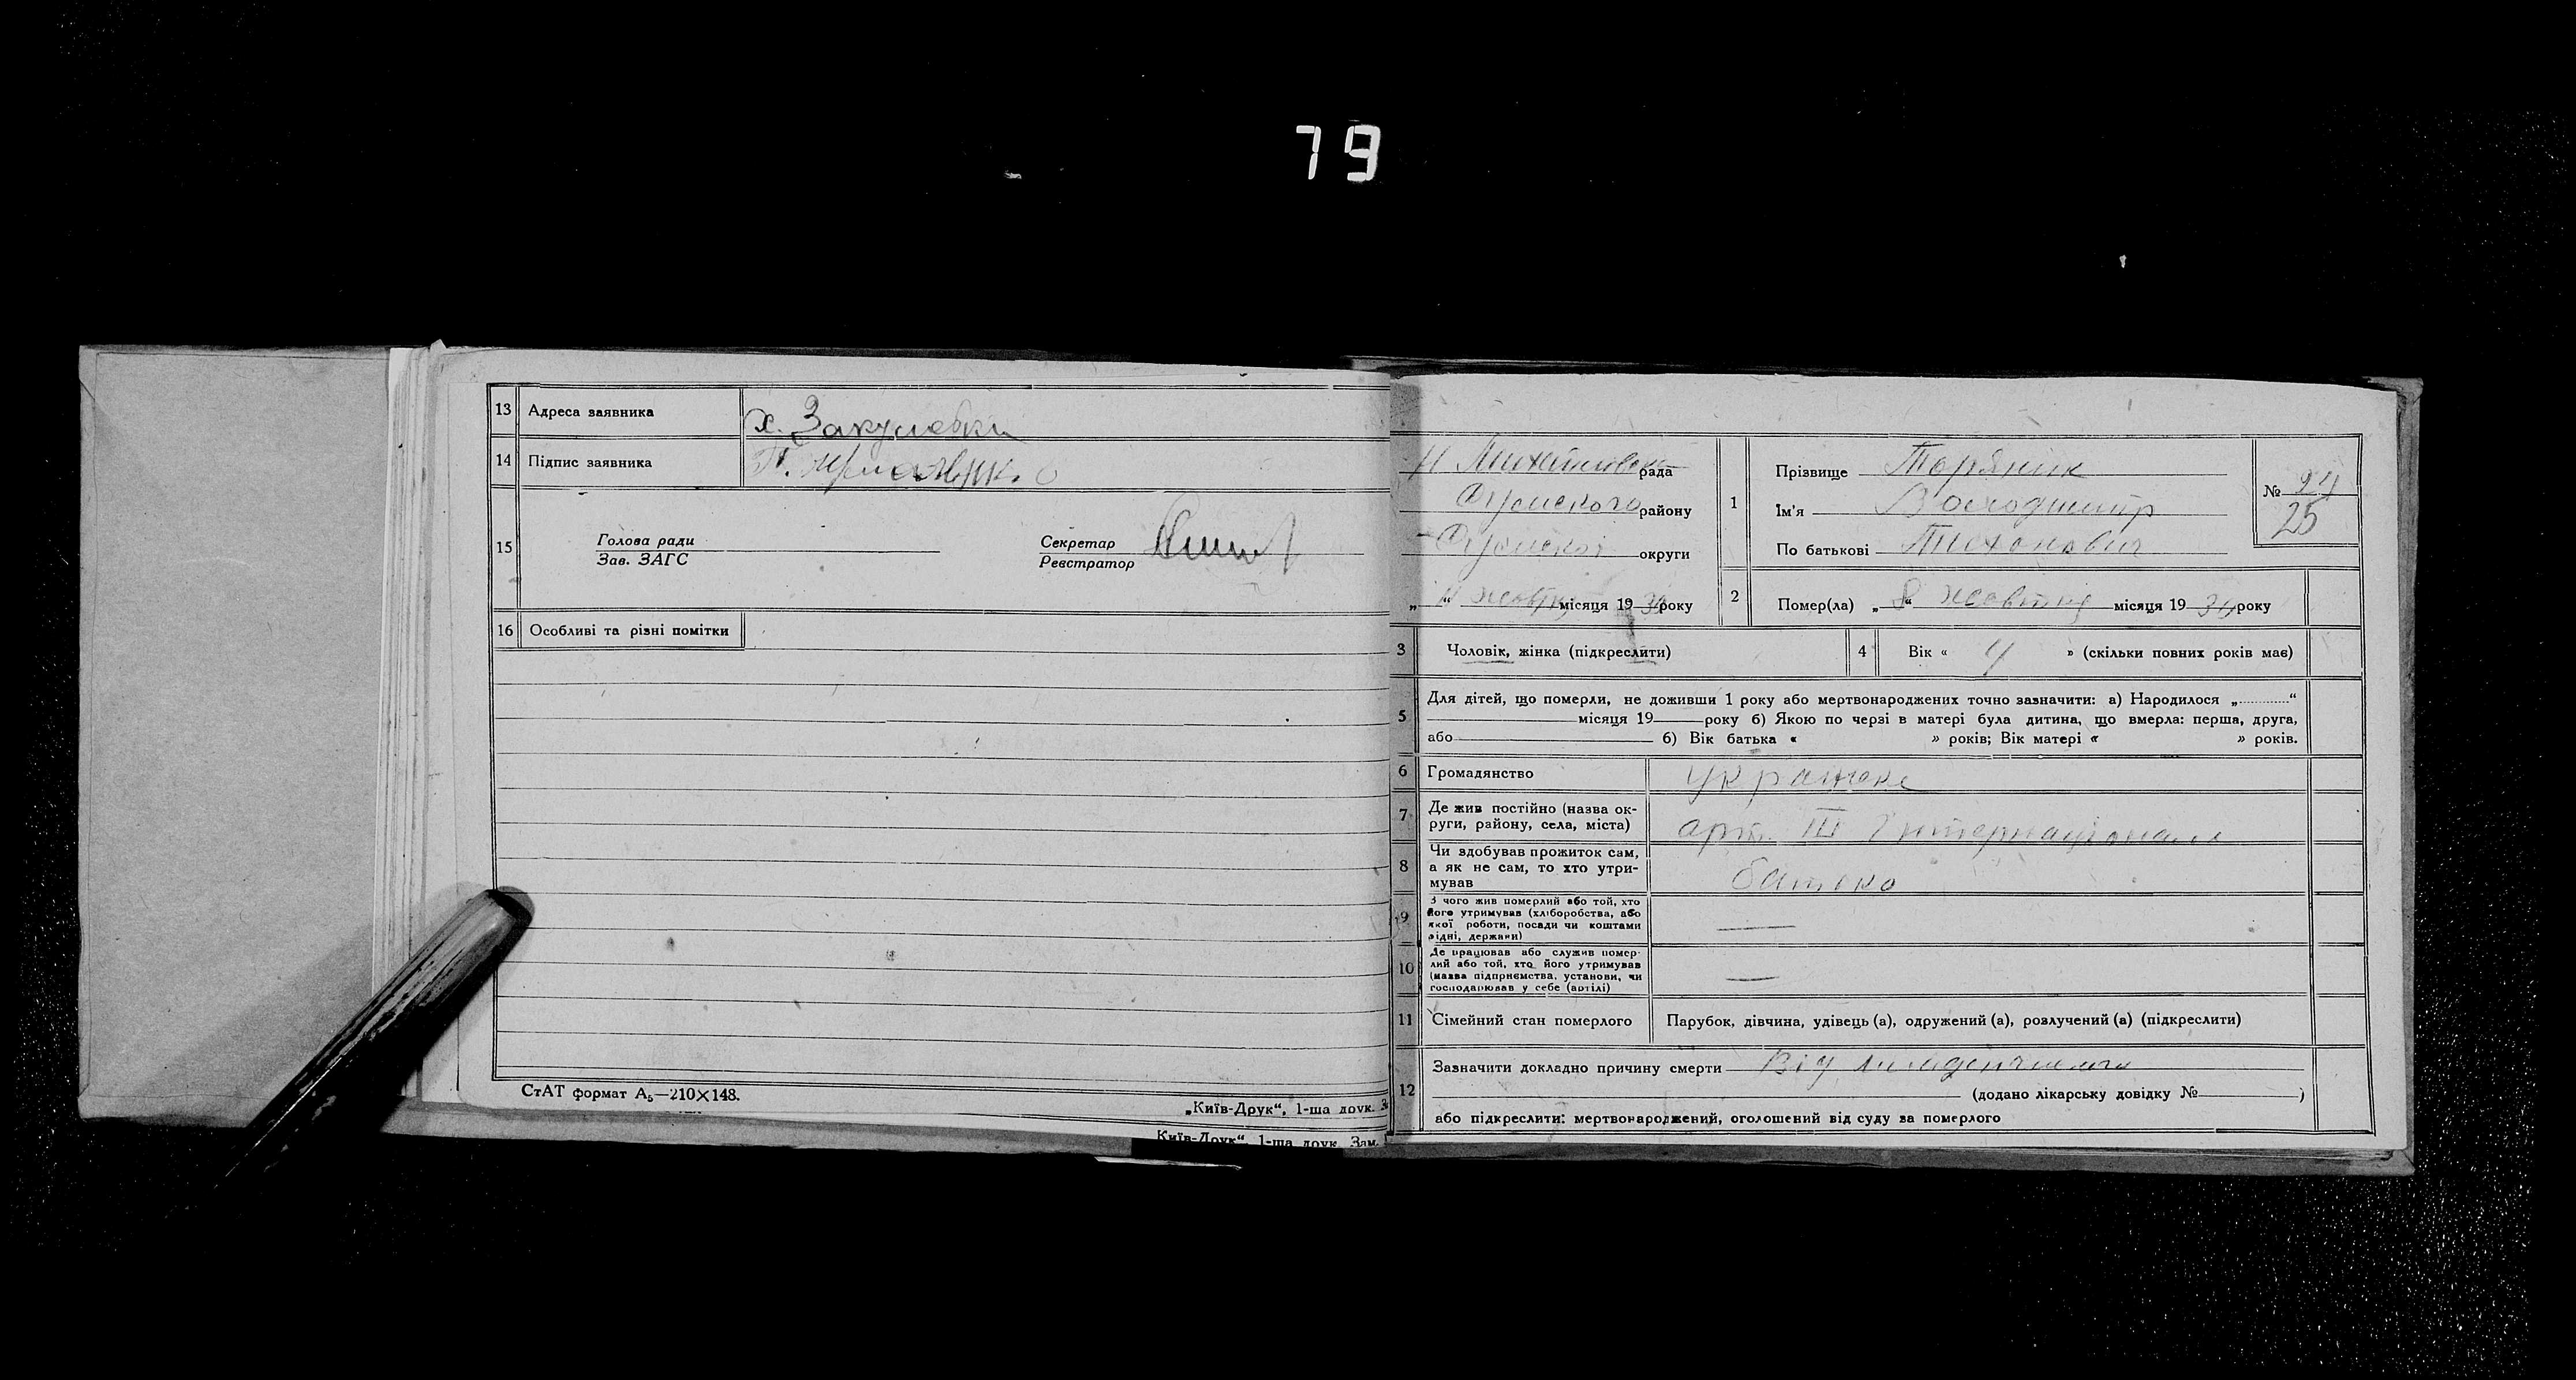 79
13 Адреса заявника х. Закумовки
14 Підпис заявника
15 Голова ради
Зав. ЗАГС
Секретар
Реєстратор
16 Особливі та різні помітки
СтАТ формат А₅—210×148.
„Київ-Друк“, 1-ша друк. З
Київ-Друк“, 1-ша друк. Зам.
рада
Сумского району
Сумскої округи
„ “ місяця 19 34 року
1 Прізвище Торяник
Ім'я Володимир
По батькові Тихонович
№ 24
25
2 Помер(ла) „ 8 “ жовтня місяця 19 34 року
3 Чоловік, жінка (підкреслити)
4 Вік « 4 » (скільки повних років має)
5 Для дітей, що померли, не доживши 1 року або мертвонароджених точно зазначити: а) Народилося „ “
місяця 19 року б) Якою по черзі в матері була дитина, що вмерла: перша, друга,
або б) Вік батька « » років; Вік матері « » років.
6 Громадянство українс
7 Де жив постійно (назва ок-
руги, району, села, міста) арт. III Інтернаціонал
8 Чи здобував прожиток сам,
а як не сам, то хто утри-
мував батько
9 З чого жив померлий або той, хто
його утримував (хліборобства, або
якої роботи, посади чи коштами
рідні, держави)
10 Де працював або служив помер-
лий або той, хто його утримував
(назва підприємства, установи, чи
господарював у себе (артілі)
11 Сімейний стан померлого Парубок, дівчина, удівець (а), одружений (а), розлучений (а) (підкреслити)
12 Зазначити докладно причину смерти Від
(додано лікарську довідку № )
або підкреслити: мертвонароджений, оголошений від суду за померлого